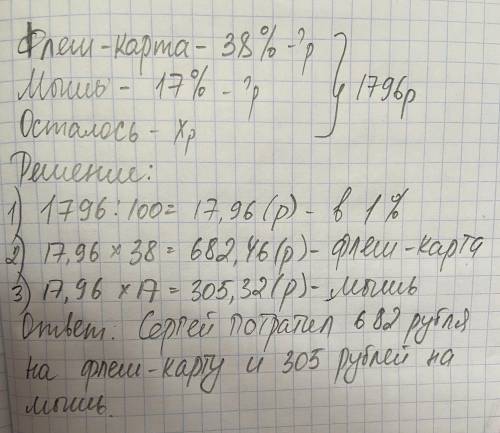 Флеш-карта - 38% - ?р
Мышь - 17% - ?р } 1796р
Осталось - Хр
Решение:
1) 1796:100 = 17,96 (р) - в 1%
2) 17,96 × 38 = 682,46 (р) - флеш-карта
3) 17,96 × 17 = 305,32 (р) - мышь
Ответ: Сергей потратил 682 рубля
на флеш-карту и 305 рублей на
мышь.